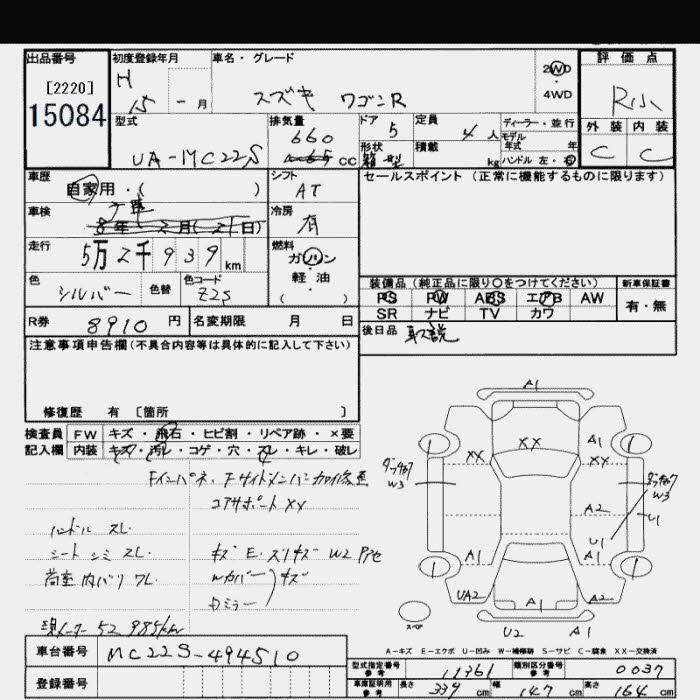 出品番号
[2220]
15084
初度登録年月
H 15 - 月
車名・グレード
スズキ ワゴンR
2WD
・
4WD
評価点
R小
外装 内装
C C
型式
UA-MC22S
排気量
660
cc
ドア
5
形状
箱型
定員
4 人
積載
kg
ディーラー・並行
モデル
年式 年
ハンドル 左・右
車歴
自家用・( )
シフト
AT
セールスポイント (正常に機能するものに限ります)
車検
8年 2月(21日)
冷房
有
走行
5万2千939km
燃料
ガソリン
軽・油
( )
色
シルバー
色替
色コード
Z2S
装備品 (純正品に限り〇をつけてください)
新車保証書
PS PW ABS エアB AW
SR ナビ TV カワ
有・無
R券
8910 円
名変期限 月 日
後日品
取説
注意事項申告欄(不具合内容等は具体的に記入して下さい)
修復歴 有 〔箇所 〕
検査員 FW キズ・飛石・ヒビ割・リペア跡・×要
記入欄 内装 キズ・汚レ・コゲ・穴・スレ・キレ・破レ
コアサポート XX
ハンドル スレ
シート シミ スレ
荷室 内バリ ワレ
キズ E
W2
カバー
キズ
ミラー
現メーター 52,985km
A1
XX XX
A1
XX
W3
W3
A2
U1
U1
A1 A1
UA2 A2
A1
U2 A1
スペア
A-キズ E-エクボ U-凹み W-補修跡 S-サビ C-腐食 XX-交換済
車台番号
MC22S-494510
登録番号
型式指定番号
参考
11361
類別区分番号
参考
0037
車庫証明用
参考
長さ 339 cm 幅 147 cm 高さ 164 cm